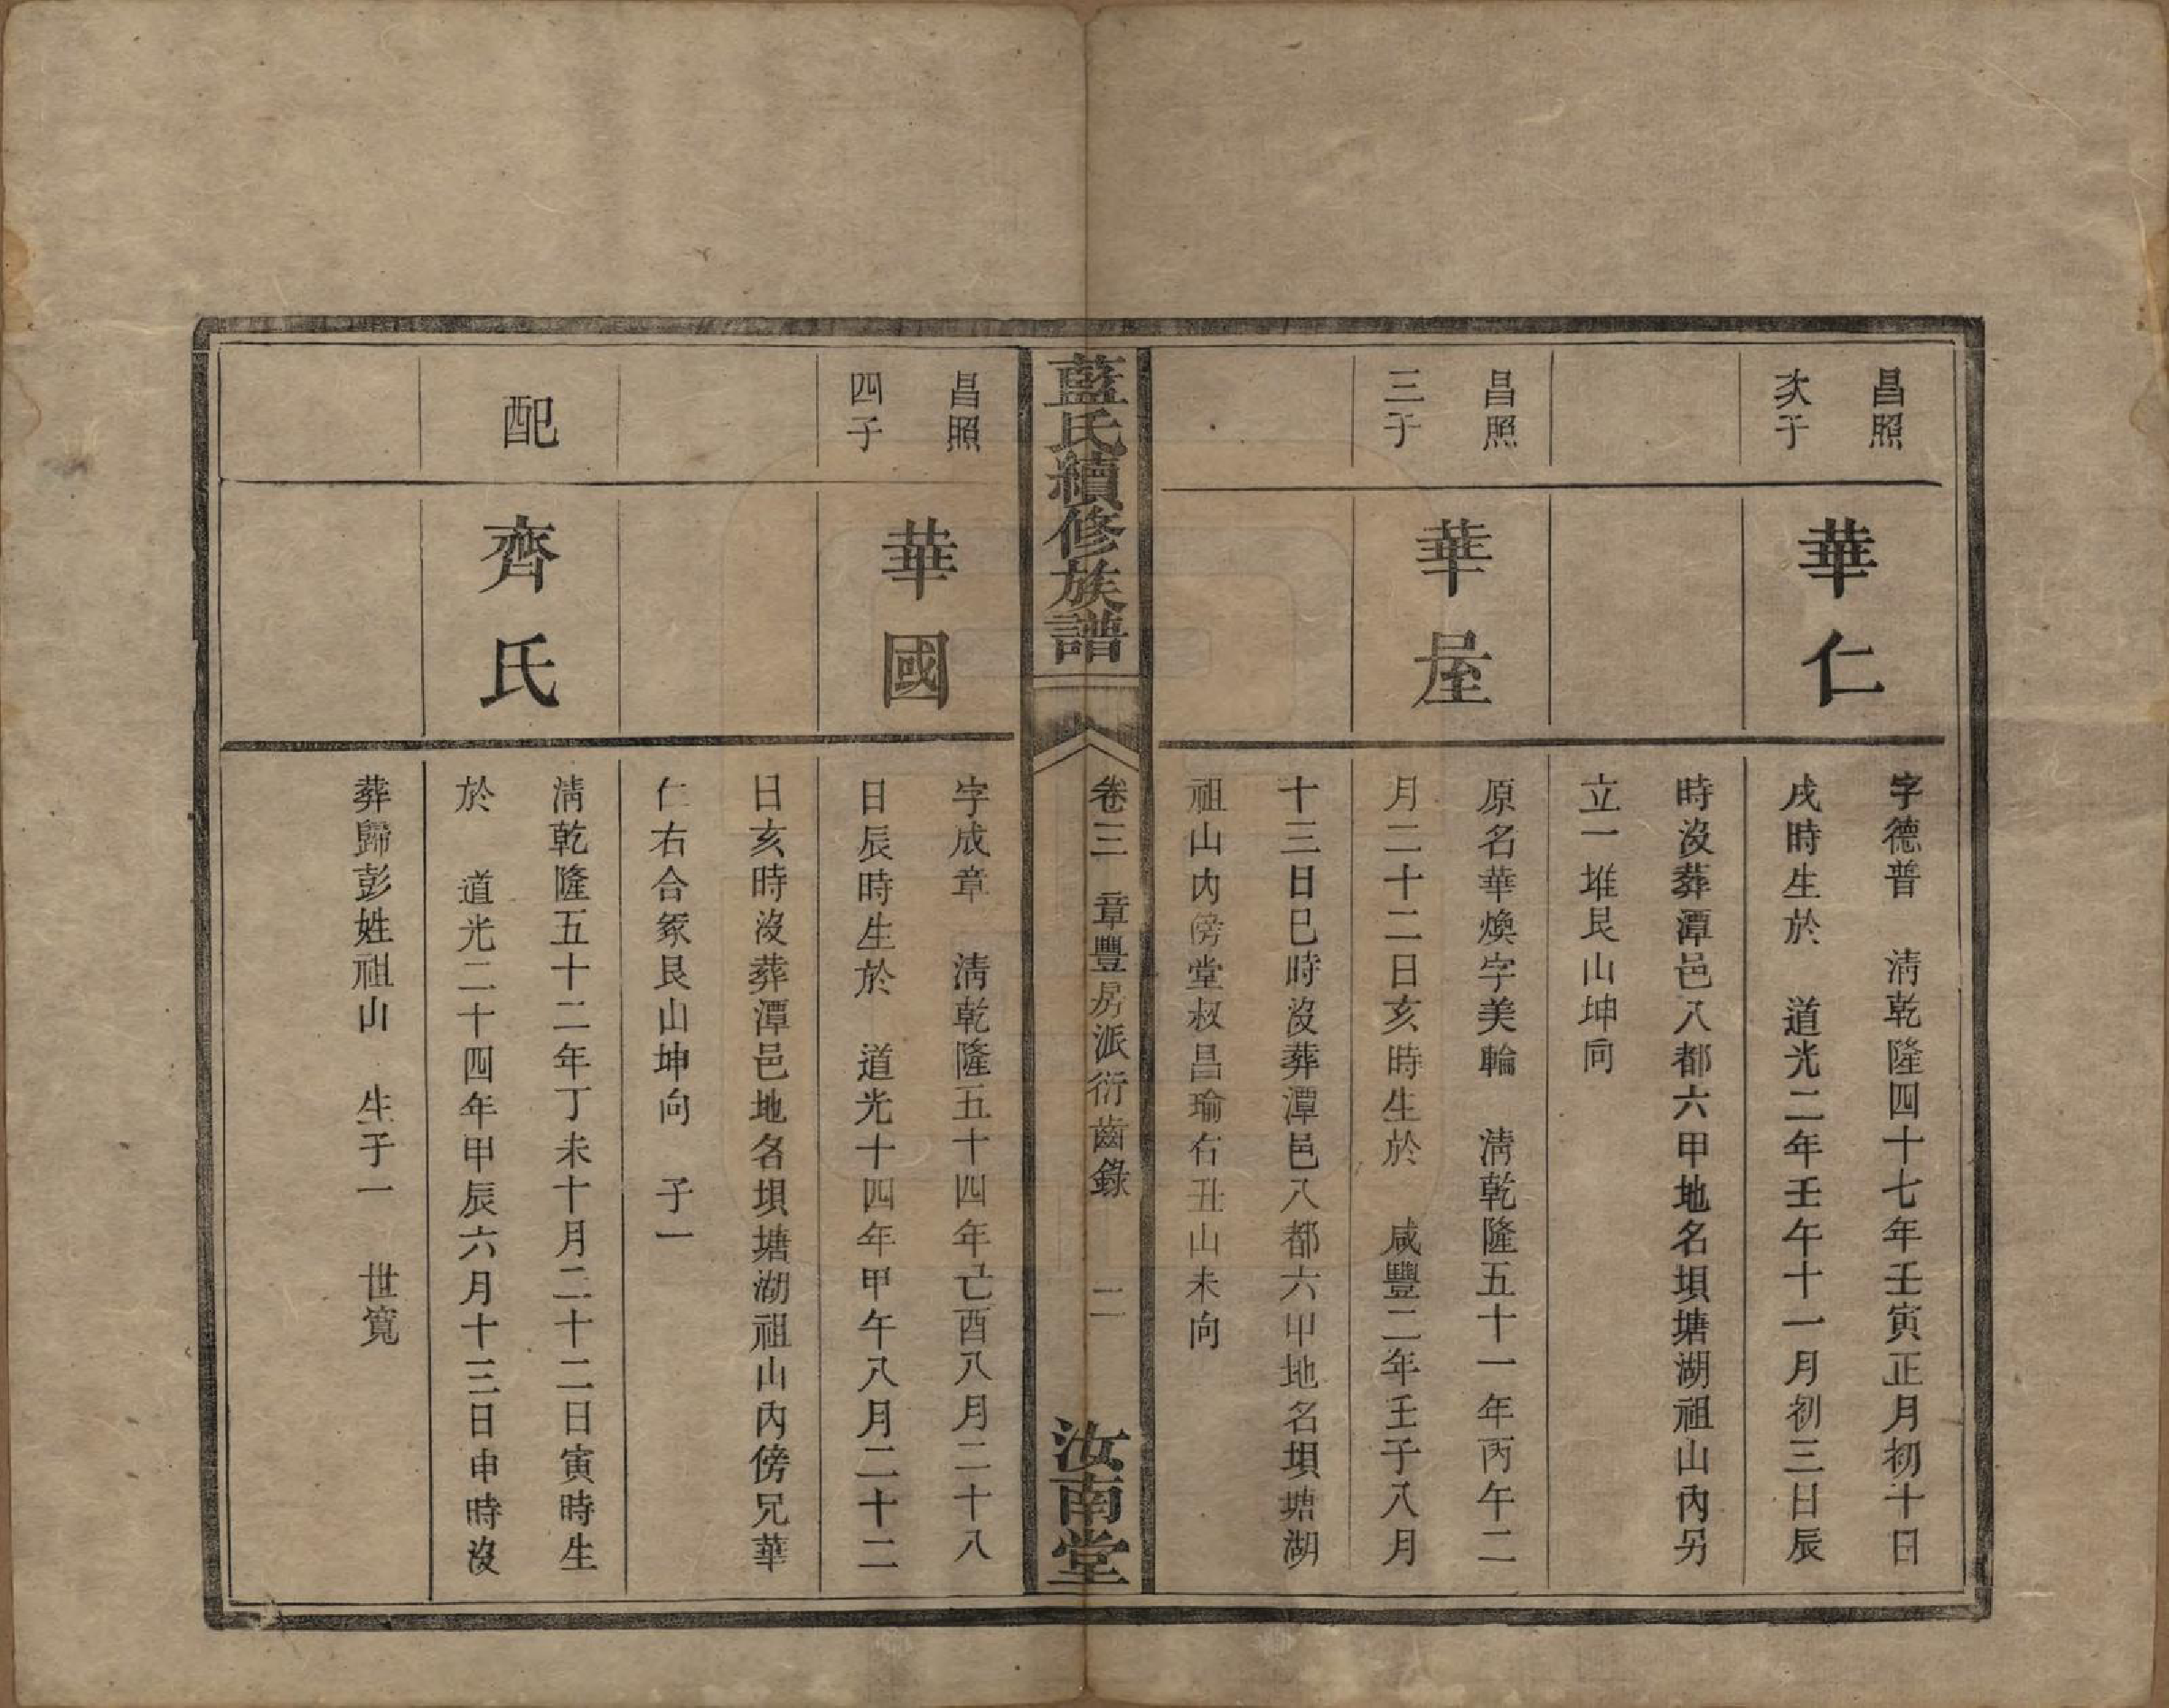 昌照
次子
華仁
字德普　清乾隆四十七年壬寅正月初十日
戌時生於　道光二年壬午十一月初三日辰
時沒葬潭邑八都六甲地名垻塘湖祖山內另
立一堆艮山坤向
昌照
三子
華屋
原名華煥字美輪　清乾隆五十一年丙午二
月二十二日亥時生於　咸豐二年壬子八月
十三日巳時沒葬潭邑八都六甲地名垻塘湖
祖山內傍堂叔昌瑜右丑山未向
藍氏續修族譜
卷三　章豐房派衍齒錄　二
汝南堂
昌照
四子
華國
字成章　清乾隆五十四年己酉八月二十八
日辰時生於　道光十四年甲午八月二十二
日亥時沒葬潭邑地名垻塘湖祖山內傍兄華
仁右合冢艮山坤向　子一
配
齊氏
清乾隆五十二年丁未十月二十二日寅時生
於　道光二十四年甲辰六月十三日申時沒
葬歸彭姓祖山　生子一　世寬